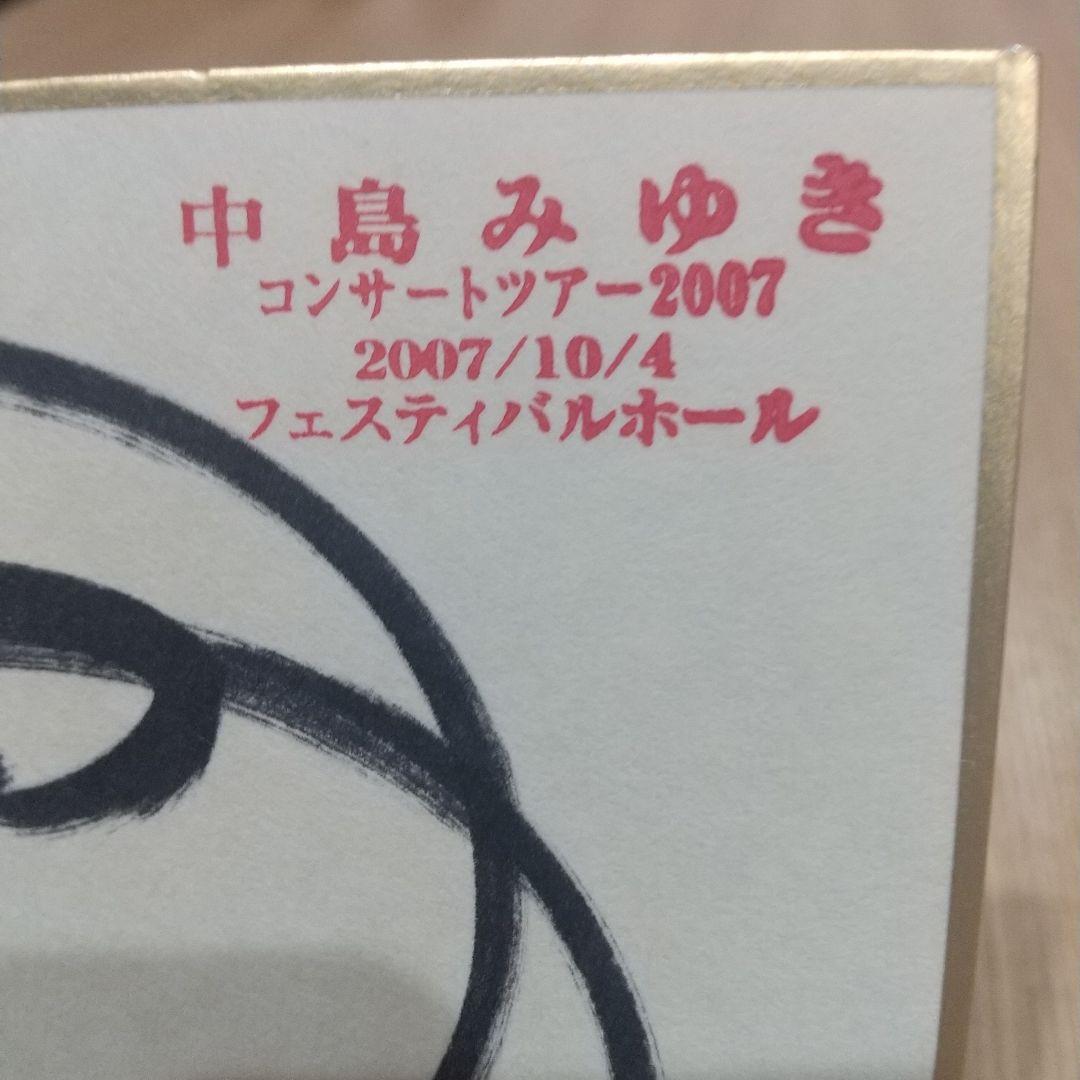 中島みゆき
コンサートツアー2007
2007/10/4
フェスティバルホール